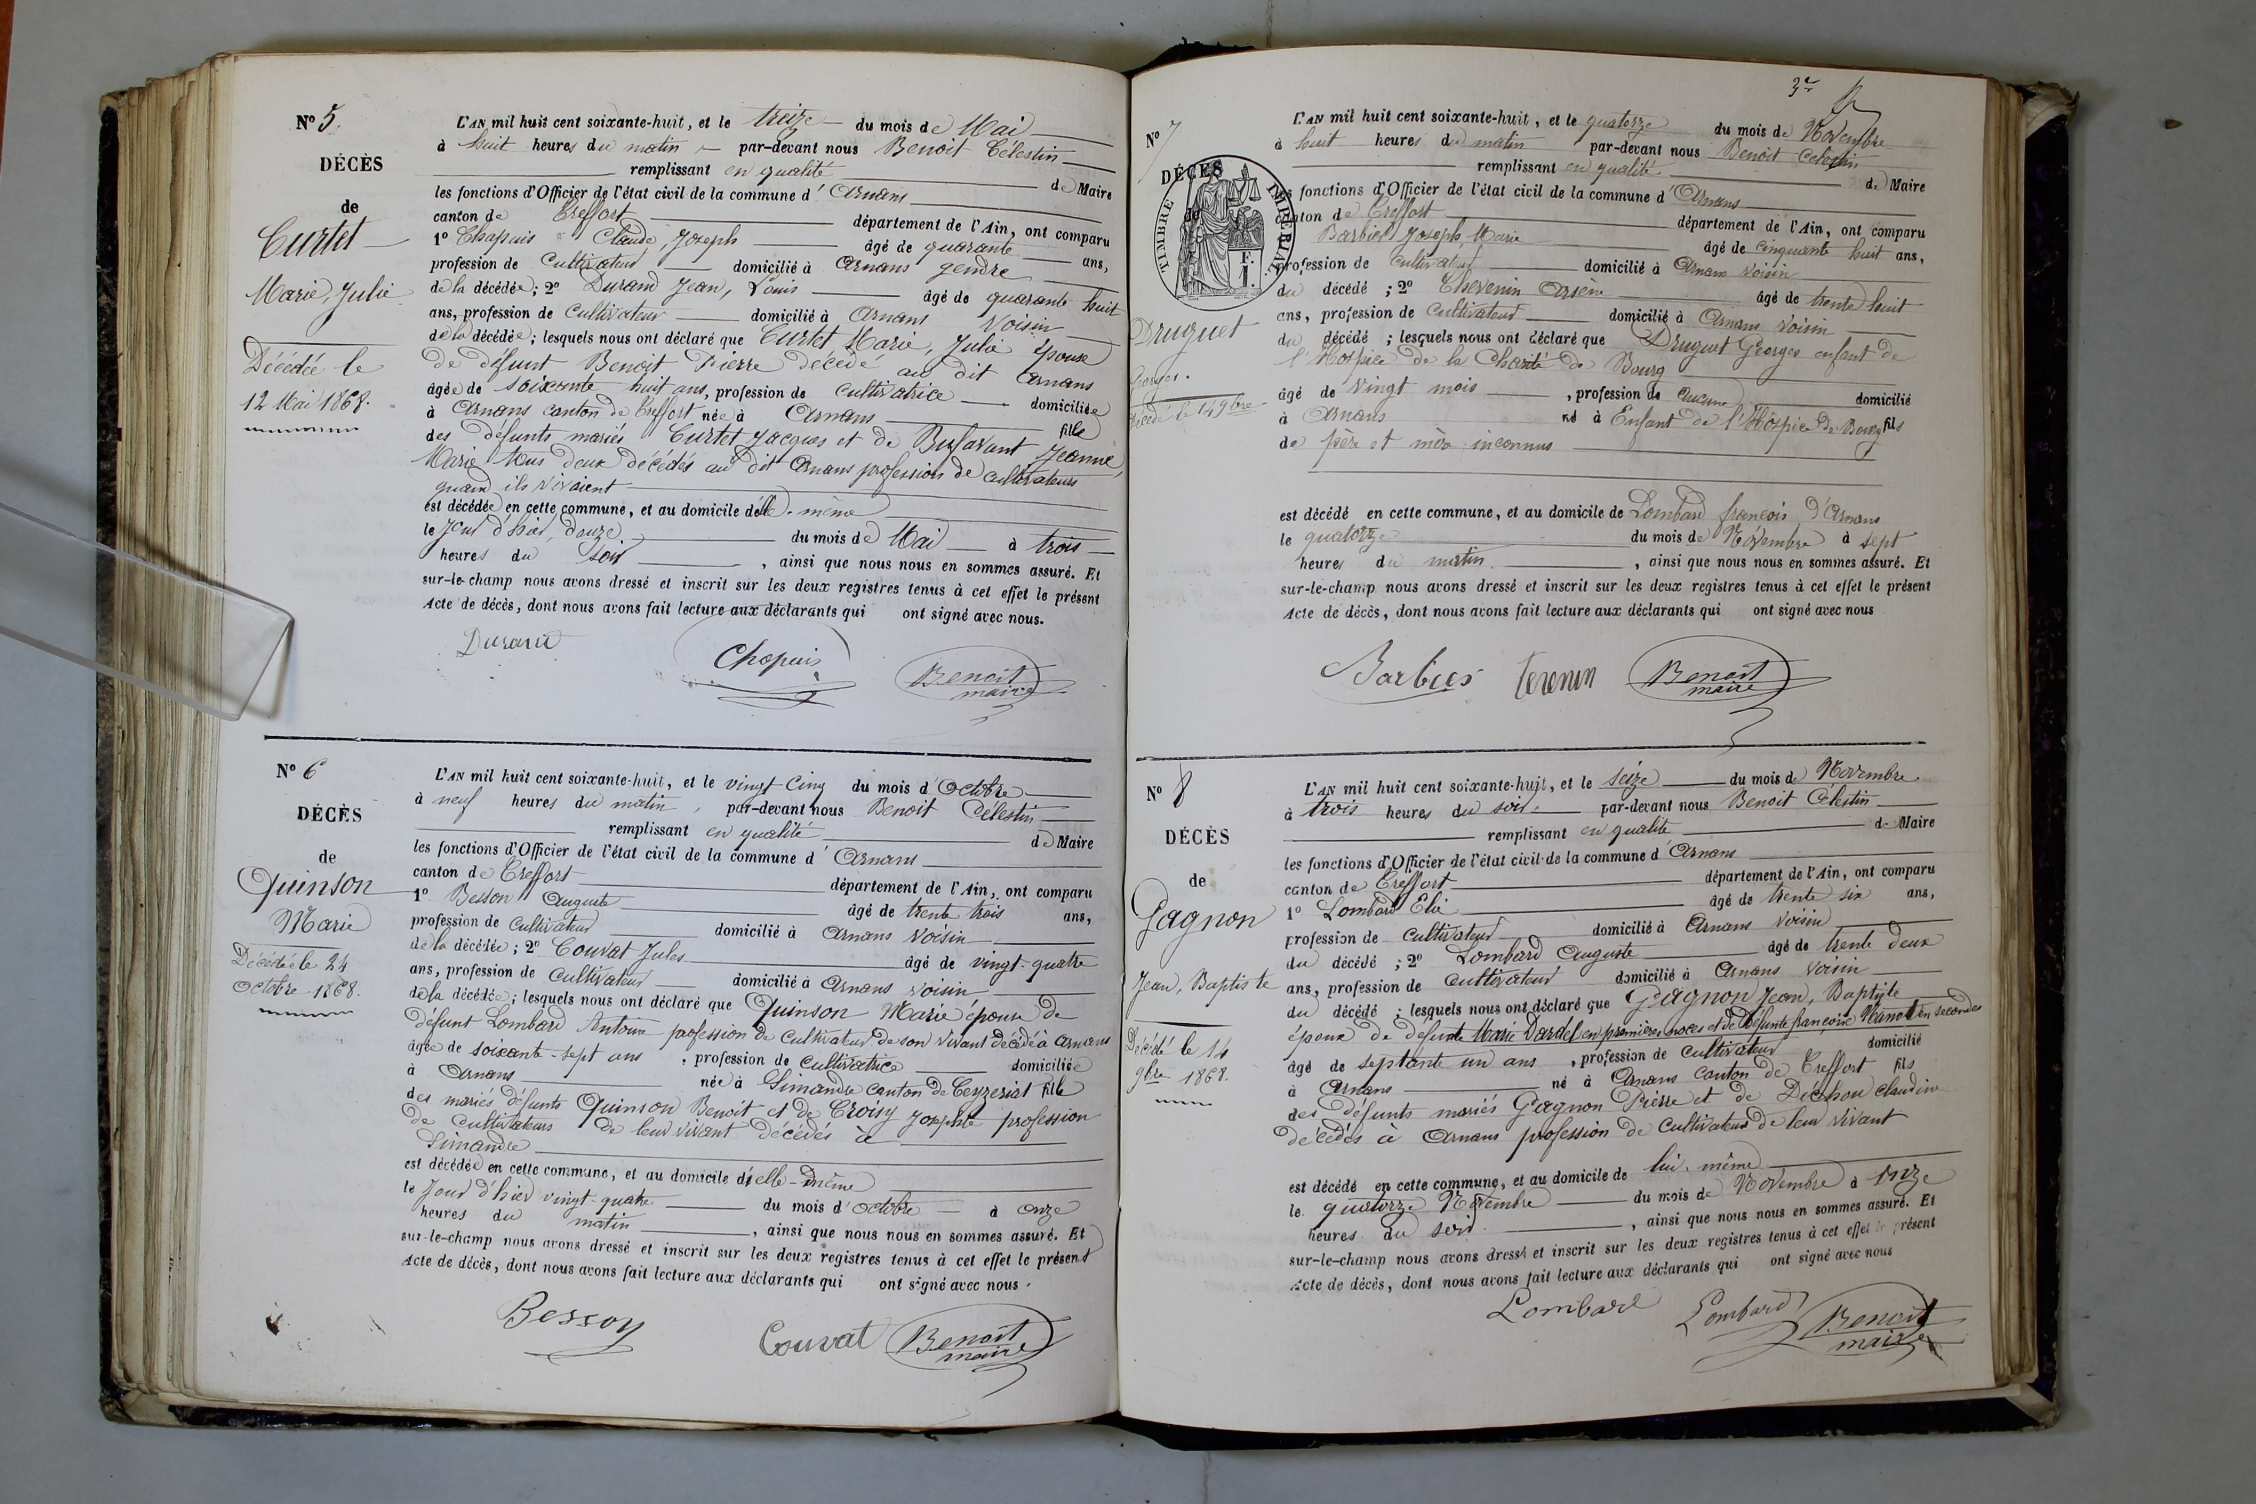 N° 5.
DÉCÈS
de
Curtet
Marie, Julie
Décédée le
12 Mai 1868.
L'AN mil huit cent soixante-huit, et le treize du mois de Mai
à huit heures du matin par-devant nous Benoit Célestin
remplissant en qualité de Maire
les fonctions d'Officier de l'état civil de la commune d'Arnans
canton de Treffort département de l'Ain, ont comparu
1° Chapuis Claude, Joseph âgé de quarante ans,
profession de Cultivateur domicilié à Arnans gendre
de la décédée; 2° Durand Jean, Louis âgé de quarante huit
ans, profession de Cultivateur domicilié à Arnans Voisin
de la décédée; lesquels nous ont déclaré que Curtet Marie, Julie épouse
de défunt Benoit Pierre décédé au dit Arnans
âgée de soixante huit ans, profession de Cultivatrice domiciliée
à Arnans canton de Treffort née à Arnans fille
des défunts mariés Curtet Jacques et de Jeanne
Marie tous deux décédés au dit Arnans profession de cultivateurs
quand ils vivaient
est décédée en cette commune, et au domicile d'elle-même
le Jour d'hier, douze du mois de Mai à trois
heures du soir, ainsi que nous nous en sommes assuré. Et
sur-le-champ nous avons dressé et inscrit sur les deux registres tenus à cet effet le présent
Acte de décès, dont nous avons fait lecture aux déclarants qui ont signé avec nous.
Durand Chapuis Benoit
maire
N° 6
DÉCÈS
de
Quinson
Marie
Décédée le 24
Octobre 1868.
L'AN mil huit cent soixante-huit, et le vingt Cinq du mois d'Octobre
à neuf heures du matin, par-devant nous Benoit Célestin
remplissant en qualité de Maire
les fonctions d'Officier de l'état civil de la commune d'Arnans
canton de Treffort département de l'Ain, ont comparu
1° Besson Auguste âgé de trente trois ans,
profession de Cultivateur domicilié à Arnans Voisin
de la décédée; 2° Couvat Jules âgé de vingt-quatre
ans, profession de Cultivateur domicilié à Arnans voisin
de la décédée; lesquels nous ont déclaré que Quinson Marie épouse de
défunt Lombard Antoine profession de Cultivateur de son vivant décédé à Arnans
âgée de soixante-sept ans, profession de Cultivatrice domiciliée
à Arnans née à Simandre Canton de Ceyzeriat fille
des mariés défunts Quinson Benoit et de Croisy Josephte profession
de Cultivateurs de leur vivant décédés à
Simandre
est décédée en cette commune, et au domicile d'elle-même
le Jour d'hier vingt-quatre du mois d'Octobre à onze
heures du matin, ainsi que nous nous en sommes assuré. Et
sur-le-champ nous avons dressé et inscrit sur les deux registres tenus à cet effet le présent
Acte de décès, dont nous avons fait lecture aux déclarants qui ont signé avec nous.
Besson Couvat Benoit
maire
N° 7
DÉCÈS
de
TIMBRE IMPÉRIAL
1 F.
Druguet
Georges.
Décédé le 14 9bre
L'AN mil huit cent soixante-huit, et le quatorze du mois de Novembre
à huit heures du matin par-devant nous Benoit Celestin
remplissant en qualité de Maire
les fonctions d'Officier de l'état civil de la commune d'Arnans
canton de Treffort département de l'Ain, ont comparu
Barbier Joseph, Marie âgé de cinquante huit ans,
profession de Cultivateur domicilié à Arnans Voisin
du décédé; 2° Thevenin Arsene âgé de trente huit
ans, profession de Cultivateur domicilié à Arnans Voisin
du décédé; lesquels nous ont déclaré que Druguet Georges enfant de
l'Hospice de la Charité de Bourg
âgé de vingt mois, profession de aucune domicilié
à Arnans né à Enfant de l'Hôspice de Bourg fils
de père et mère inconnus
est décédé en cette commune, et au domicile de Lombard françois d'Arnans
le quatorze du mois de Novembre à sept
heures du matin, ainsi que nous nous en sommes assuré. Et
sur-le-champ nous avons dressé et inscrit sur les deux registres tenus à cet effet le présent
Acte de décès, dont nous avons fait lecture aux déclarants qui ont signé avec nous
Barbier Benoit
maire
N° 8
DÉCÈS
de
Gagnon
Jean, Baptiste
Décédé le 14
9bre 1868.
L'AN mil huit cent soixante-huit, et le seize du mois de Novembre
à trois heures du soir par-devant nous Benoit Célestin
remplissant en qualité de Maire
les fonctions d'Officier de l'état civil de la commune d'Arnans
canton de Treffort département de l'Ain, ont comparu
1° Lombard Elie âgé de trente six ans,
profession de Cultivateur domicilié à Arnans Voisin
du décédé; 2° Lombard Auguste âgé de trente deux
ans, profession de Cultivateur domicilié à Arnans voisin
du décédé; lesquels nous ont déclaré que Gagnon Jean, Baptiste
époux de défunte Marie Dardel en premières noces et de Défunte françoise en secondes
âgé de septante un ans, profession de Cultivateur domicilié
à Arnans né à Arnans canton de Treffort fils
des défunts mariés Gagnon Pierre et de Dechou Claudine
décédés à Arnans profession de Cultivateurs de leur vivant
est décédé en cette commune, et au domicile de lui-même
le quatorze Novembre du mois de Novembre à onze
heures du soir, ainsi que nous nous en sommes assuré. Et
sur-le-champ nous avons dressé et inscrit sur les deux registres tenus à cet effet le présent
Acte de décès, dont nous avons fait lecture aux déclarants qui ont signé avec nous
Lombard Lombard Benoit
maire